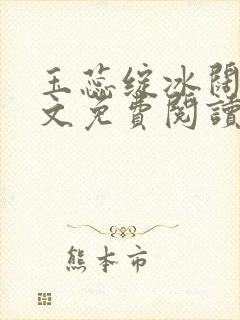 玉蕊绽冰闊
文免費閱讀
熊本市